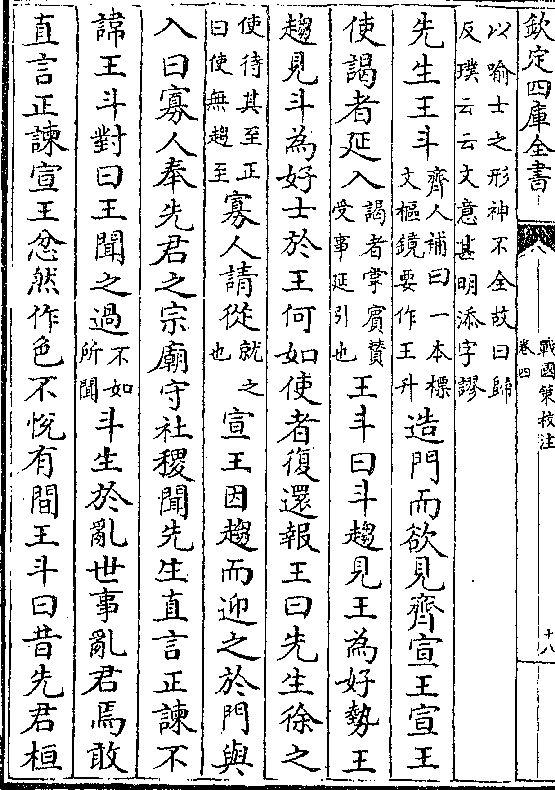 欽定四庫全書
戰國策校注
卷四
十八
以喻士之形神不全故曰歸
反璞云云文意甚明添字謬
先生王斗齊人補曰一本標文樞鏡要作王升造門而欲見齊宣王宣王
使謁者延入謁者掌賓贊受事延引也王斗曰斗趨見王為好勢王
趨見斗為好士於王何如使者復還報王曰先生徐之
使待其至正曰使無趨至寡人請從就之也宣王因趨而迎之於門與
入曰寡人奉先君之宗廟守社稷聞先生直言正諫不
諱王斗對曰王聞之過不如所聞斗生於亂世事亂君焉敢
直言正諫宣王忿然作色不悅有間王斗曰昔先君桓